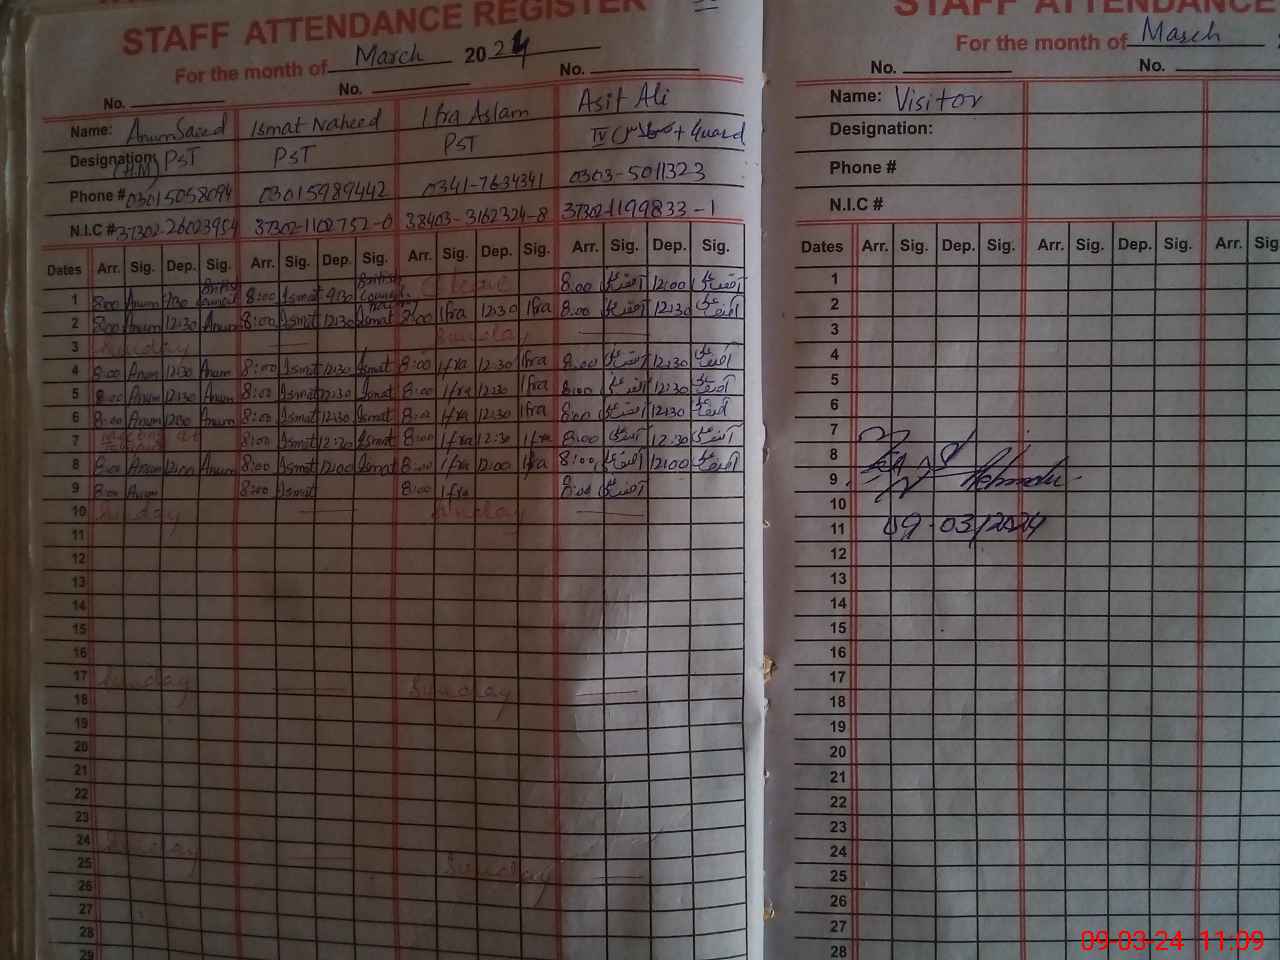 STAFF ATTENDANCE REGISTER
For the month of March 2024
No. No. No.
Name: Anum Saeed Ismat Naheed Ifra Aslam Asif Ali
Designation: (H.M) PST PST PST IV + Guard
Phone # 03015058094 03015989442 0341-7634341 0303-5011323
N.I.C # 37302-26023954 37302-1102752-0 38403-3162324-8 37302-1199833-1
Dates Arr. Sig. Dep. Sig. Arr. Sig. Dep. Sig. Arr. Sig. Dep. Sig. Arr. Sig. Dep. Sig.
1 8:00 Anum British Council 8:00 Ismat 9:30 British Council 8:00 12:00
2 8:00 Anum 12:30 Anum 8:00 Ismat 12:30 Ismat 8:00 Ifra 12:30 Ifra 8:00 12:30
3 Sunday Sunday
4 8:00 Anum 12:30 Anum 8:00 Ismat 12:30 Ismat 8:00 Ifra 12:30 Ifra 8:00 12:30
5 8:00 Anum 12:30 Anum 8:00 Ismat 12:30 Ismat 8:00 Ifra 12:30 Ifra 8:00 12:30
6 8:00 Anum Anum 8:00 Ismat 12:30 Ismat 8:00 Ifra 12:30 Ifra 8:00 12:30
7 meeting at 8:00 Ismat 12:30 Ismat 8:00 Ifra 12:30 Ifra 8:00 12:30
8 8:00 Anum 12:00 Anum 8:00 Ismat 12:00 Ismat 8:00 Ifra 12:00 Ifra 8:00 12:00
9 8:00 Anum 8:00 Ismat 8:00 Ifra 8:00
10 Sunday Sunday
11
12
13
14
15
16
17 Sunday Sunday
18
19
20
21
22
23
24 Sunday
25 Sunday
26
27
28
29
STAFF ATTENDANCE
For the month of March
No. No.
Name: Visitor
Designation:
Phone #
N.I.C #
Dates Arr. Sig. Dep. Sig. Arr. Sig. Dep. Sig. Arr. Sig
1
2
3
4
5
6
7
8
9
10
11 09-03/2024
12
13
14
15
16
17
18
19
20
21
22
23
24
25
26
27
28
09-03-24 11:09